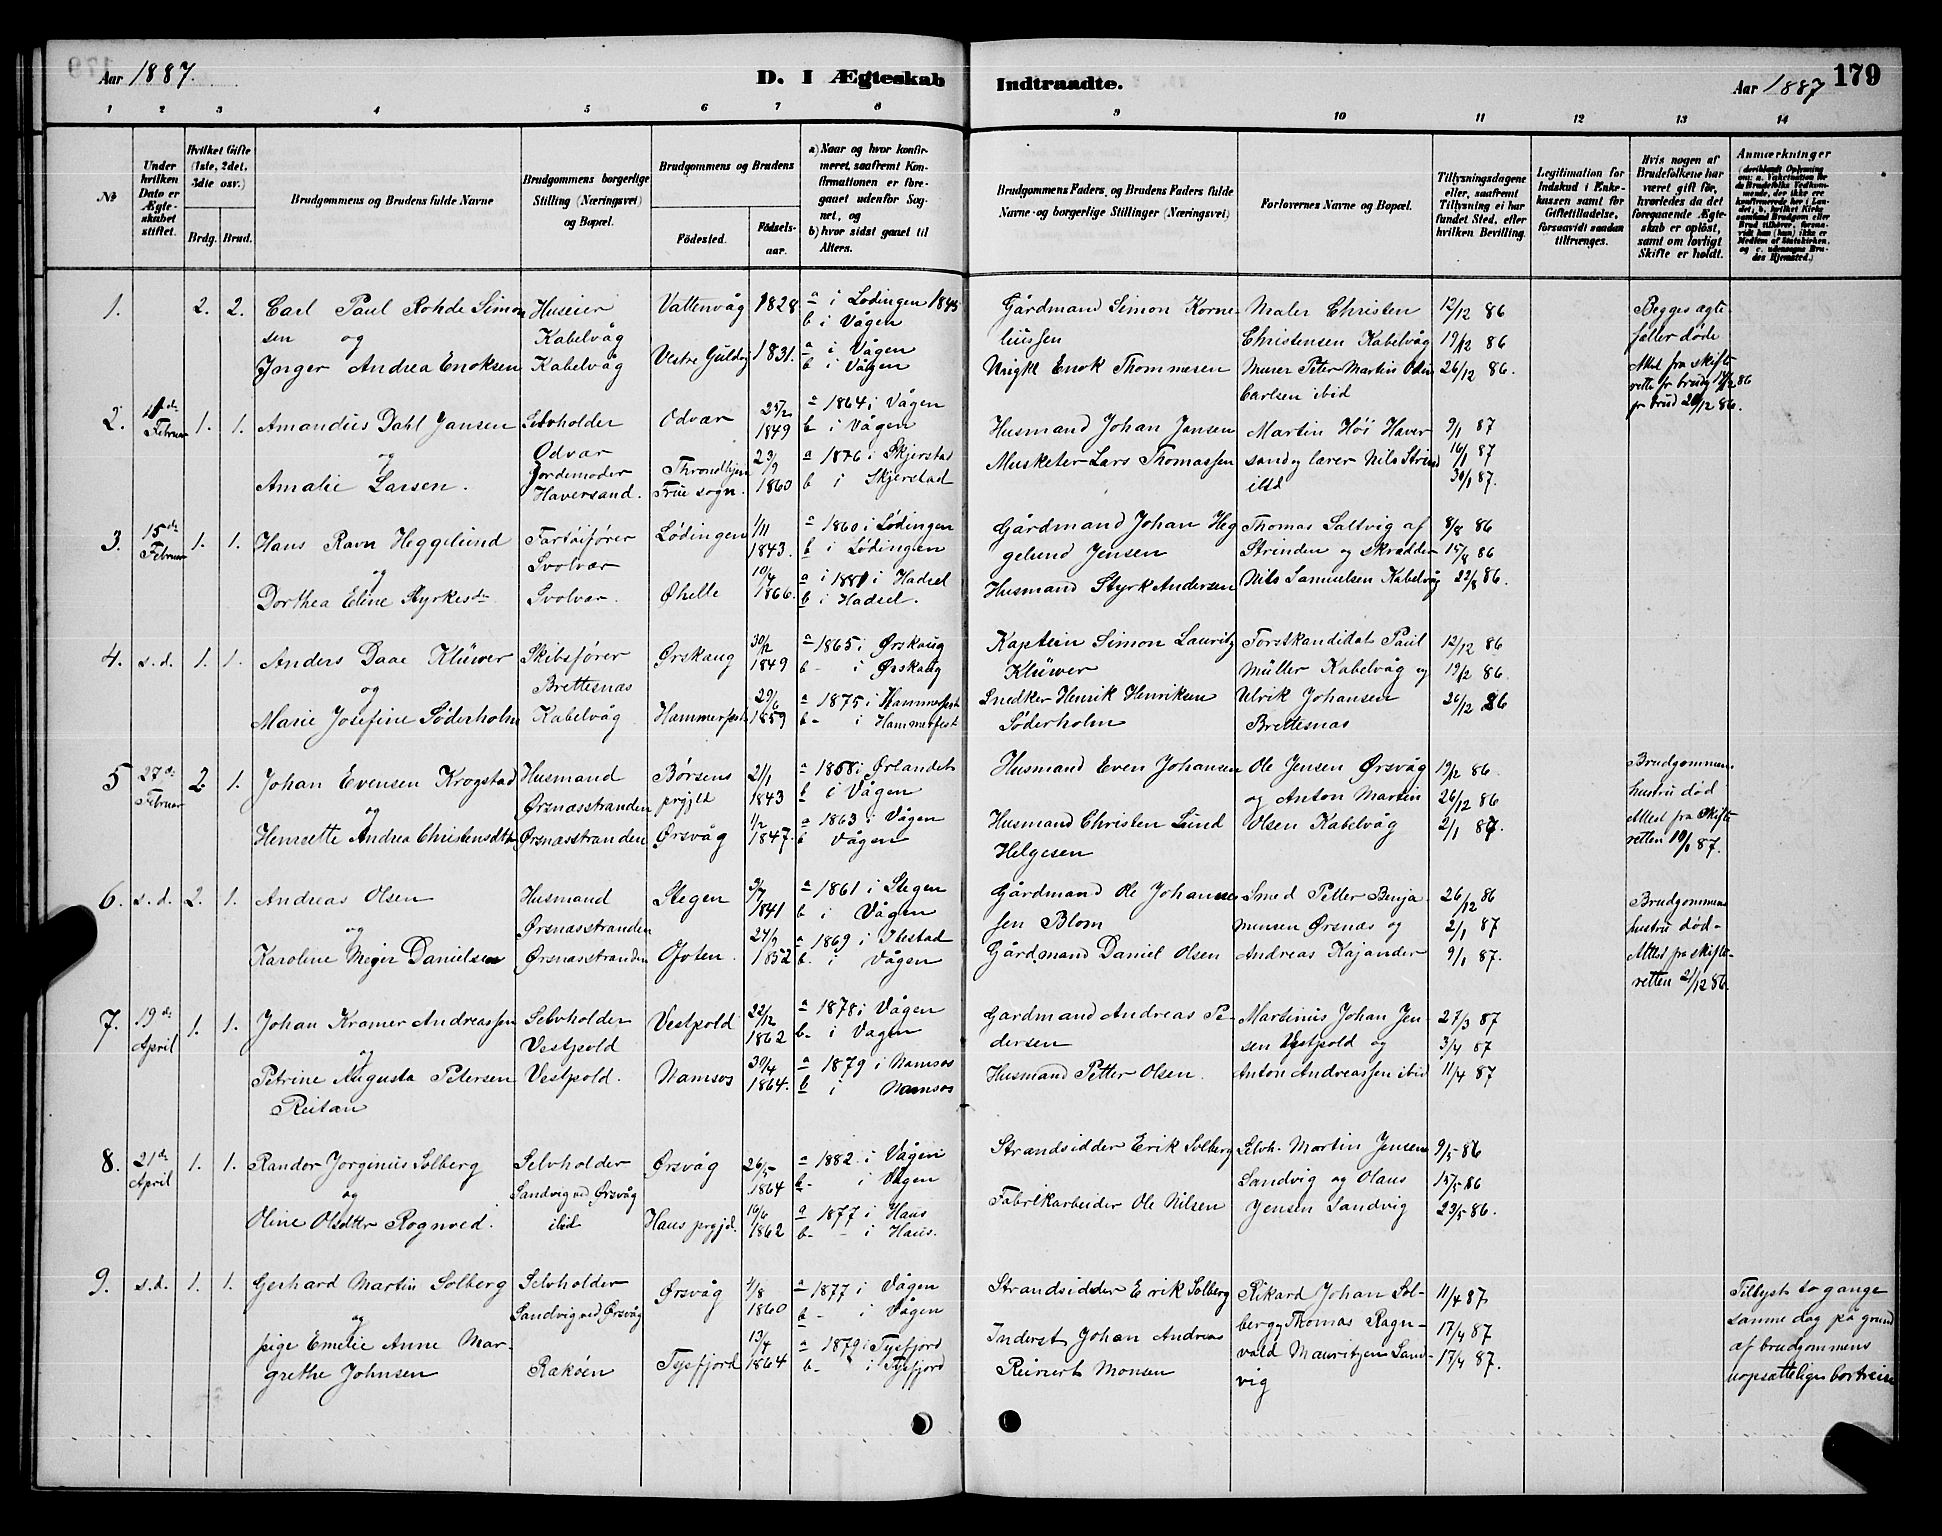 Aar 1887.
D. I Ægteskab
Indtraadte.
Aar 1887
179
1 2 3 4 5 6 7 8
9 10 11 12 13 14
№
Under hvilken Dato er Ægteskabet stiftet.
Hvilket Gifte (1ste, 2det, 3die osv.)
Brdg. Brud.
Brudgommens og Brudens fulde Navne
Brudgommens borgerlige Stilling (Næringsvei) og Bopæl.
Brudgommens og Brudens
Fødested.
Fødsels-aar.
a) Naar og hvor konfirmeret, saafremt Konfirmationen er foregaaet udenfor Sognet, og
b) hvor sidst gaaet til Alters.
Brudgommens Faders, og Brudens Faders fulde Navne og borgerlige Stillinger (Næringsvei)
Forlovernes Navne og Bopæl.
Tillysningsdagene eller, saafremt Tillysning ei har fundet Sted, efter hvilken Bevilling.
Legitimation for Indskud i Enkekassen samt for Giftetilladelse, forsaavidt saadan tiltrænges.
Hvis nogen af Brudefolkene har været gift før, hvorledes da det foregaaende Ægteskab er opløst, samt om lovligt Skifte er holdt.
Anmærkninger
1. 2. 2. Carl Paul Rohde Simon Huseier Vattenvåg 1828 a i Lødingen 1845 Gårdmand Simon Korne- Maler Christen 12/12 86 Begges ægte
sen og Kabelvåg b i Vågen liussen Christensen Kabelvåg 19/12 86 fæller døde
Inger Andrea Enoksen Kabelvåg Vestre 1831. a i Vågen b i Vågen Enok Thommesen Murer Peter Martin 26/12 86. Attest fra skifte
Carlsen ibid
2. Februar 1. 1. Amandus Dahl Jansen Selvholder Odvær 25/2 1849 a 1864 i Vågen b i Vågen Husmand Johan Jansen Martin Høi Haver 9/1 87
og Odvær
Amalie Larsen. Jordemoder Haversand. Throndhjem Frue sogn. 23/9 1860 a 1876 i Skjerstad b i Skjerstad Musketer Lars Thomassen sand og lærer Nils Strind ibid 16/1 87 30/1 87.
3. 15de Februar 1. 1. Hans Ravn Heggelund Fartøifører Lødingen 1/11 1843. a 1860 i Lødingen b i Lødingen Gårdmand Johan Heg Thomas Saltvig af 8/8 86
og Svolvær gelund Jensen Strinden og skrædder 15/8 86
Dorthea Eline Styrkesdr Svolvær. Øhelle 10/4 1866. a i 1881 i Hadsel b i Hadsel. Husmand Styrk Andersen Nils Samuelsen Kabelvåg 22/8 86.
4. s.d. 1. 1. Anders Daae Klüwer Skibsfører Ørskaug 30/12 1849 a 1865 i Ørskaug b- i Ørskaug Kaptein Simon Lauritz Forstkandidat Paul 12/12 86
og Brettesnæs Klüwer Müller Kabelvåg og 19/12 86.
Marie Josefine Søderholm Kabelvåg Hammerfest 29/6 1859 a 1875 i Hammerfest b- i Hammerfest Snedker Henrik Henriksen Ulrik Johansen 26/12 86
Søderholm Brettesnæs
5 27de Februar 2. 1. Johan Evensen Krogstad Husmand Børsens 21/1 1843 a 1858 i Ørlandet b i Vågen Husmand Even Johansen Ole Jensen Ørsvåg 19/12 86. Brudgommens
og Ørsnæsstranden prgjld og Anton Martin 26/12 86 hustru død
Henriette Andrea Christensdtr Ørsnæsstranden Ørsvåg 1/2 1847. a 1863 i Vågen b Vågen Husmand Christen Lund Olsen Kabelvåg 2/1 87. Attest fra Skifte
Helgesen retten 10/1 87.
6. s.d. 2. 1. Andreas Olsen Husmand Stegen 3/7 1841 a 1861 i Stegen b i Vågen Gårdmand Ole Johannes- Smed Petter Benja 26/12 86 Brudgommens
og Ørsnæsstranden sen Blom minsen Ørsnæs og 2/1 87 hustru død-
Karoline Meyer Danielsen Ørsnæsstranden Ofoten. 24/9 1852 a 1869 i Ibestad b. i Vågen Gårdmand Daniel Olsen Andreas Kajander 9/1 87. Attest fra skifte-
retten 21/12 86.
7. 19de April 1. 1. Johan Kramer Andreassen Selvholder Vestpold 22/12 1862 a 1878 i Vågen b- i Vågen Gårdmand Andreas Pe- Martinus Johan Jen- 27/3 87
og Vestpold dersen sen Vestpold og 3/4 87
Petrine Augusta Petersen Vestpold. Namsos 30/4 1864. a 1879 i Namsos b i Namsos Husmand Petter Olsen. Anton Andreassen ibid 11/4 87
Reitan
8. 21de April 1. 1. Randor Jorginius Solberg Selvholder Ørsvåg 26/5 1864 a 1882 i Vågen b- i Vågen Strandsidder Erik Solberg Selvh. Martin Jensen 9/5 86
og Sandvig ved Ørsvåg Sandvig og Olaus 15/5 86
Oline Olsdtr Rognved. ibid Haus prgjd. 16/6 1862 a 1877 i Haus b- - i Haus. Fabrikarbeider Ole Nilsen Jensen Sandvig 23/5 86.
9. s.d. 1. 1. Gerhard Martin Solberg Selvholder Ørsvåg 4/8 1860 a 1877 i Vågen b- i Vågen Strandsidder Erik Solberg Rikard Johan Sol- 11/4 87 Tillyst to gange
og Sandvig ved Ørsvåg berg, Thomas Ragn- 17/4 87 samme dag på grund
pige Emelie Anne Mar- Tysfjord 13/4 1864 a 1879 i Tysfjord b- i Tysfjord Inderst Johan Andreas vald Mauritzen Sand- 17/4 87. af brudgommens
grethe Johnsen Rakøen Reinert Monsen vig uopsættelige bortreise